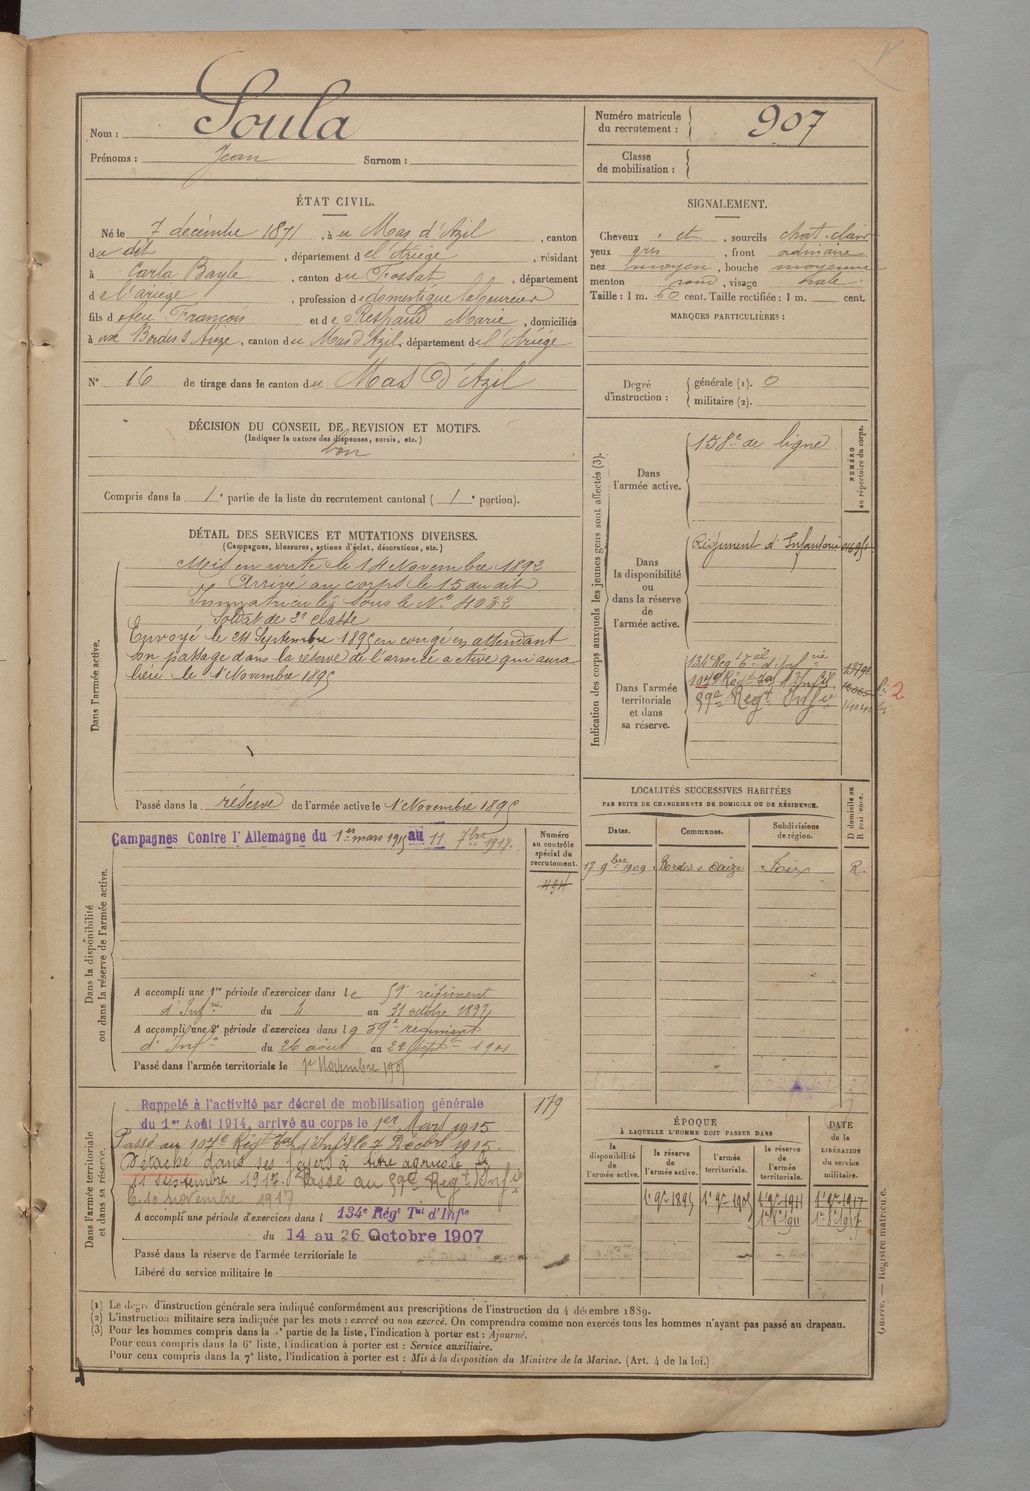 Nom : Soula
Prénoms : Jean Surnom :
Numéro matricule du recrutement : 907
Classe de mobilisation :
ÉTAT CIVIL.
Né le 7 décembre 1871, à u Mas d'Azil, canton
du dit, département de l'Ariège, résidant
à Carla Bayle, canton du Fossat, département
de l'ariege, profession de domestique laboureur
fils de feu François et de Respaud Marie, domiciliés
à aux Bordes s Arize, canton du Mas d'Azil, département de l'Ariège
N° 16 de tirage dans le canton du Mas d'Azil
DÉCISION DU CONSEIL DE REVISION ET MOTIFS.
(Indiquer la nature des dispenses, sursis, etc.)
bon
Compris dans la 1e partie de la liste du recrutement cantonal (1e portion).
SIGNALEMENT.
Cheveux et, sourcils chat. clair
yeux gris, front ordinaire
nez moyen, bouche moyenne
menton rond, visage ovale
Taille : 1 m. 60 cent. Taille rectifiée : 1 m. cent.
MARQUES PARTICULIÈRES :
Degré d'instruction :
générale (1). 0
militaire (2).
DÉTAIL DES SERVICES ET MUTATIONS DIVERSES.
(Campagnes, blessures, actions d'éclat, décorations, etc.)
Dans l'armée active.
Mis en route le 14 Novembre 1892
Arrivé au corps le 15 du dit
Immatriculé sous le N° 4032
Soldat de 2e classe
Envoyé le 24 Septembre 1895 en congé en attendant
son passage dans la réserve de l'armée active qui aura
lieu le 1 Novembre 1895
Passé dans la réserve de l'armée active le 1 Novembre 1895
Indication des corps auxquels les jeunes gens sont affectés (3).
NUMÉRO au répertoire du corps.
Dans l'armée active.
158e de ligne
Dans la disponibilité ou dans la réserve de l'armée active.
Régiment d'Infanterie
Dans l'armée territoriale et dans sa réserve.
134e Régt Tal d'Infrie
107e Régt Tal d'Infie
59e Regt Infie
2
Dans la disponibilité ou dans la réserve de l'armée active.
Campagnes Contre l'Allemagne du 1er mars 1915 au 11 7bre 1917.
Numéro au contrôle spécial du recrutement.
494
A accompli une 1re période d'exercices dans le 59e régiment
d'Infrie du 4 au 31 octobre 1897
A accompli une 2e période d'exercices dans le 59e regiment
d'Infie du 26 aout au 22 septbre 1901
Passé dans l'armée territoriale le 1er Novembre 1905
LOCALITÉS SUCCESSIVES HABITÉES
PAR SUITE DE CHANGEMENTS DE DOMICILE OU DE RÉSIDENCE.
Dates. Communes. Subdivisions de région. D domicile ou R résidence.
17 9bre 1909 Bordes s Arize Foix R.
Dans l'armée territoriale et dans sa réserve.
Rappelé à l'activité par décret de mobilisation générale
du 1er Août 1914, arrivé au corps le 1er Mars 1915
179
Passé au 107e Régt Tal d'Infie le 7 Décbre 1915.
Détaché dans ses foyers à titre agricole le
11 septembre 1917. Passé au 59e Regt d'Infie
le 10 novembre 1917
A accompli une période d'exercices dans l 134e Régt Tal d'Infie
du 14 au 26 Octobre 1907
Passé dans la réserve de l'armée territoriale le
Libéré du service militaire le
ÉPOQUE
À LAQUELLE L'HOMME DOIT PASSER DANS
la disponibilité de l'armée active. la réserve de l'armée active. l'armée territoriale. la réserve de l'armée territoriale. DATE de la LIBÉRATION du service militaire.
1e 9bre 1895 1e 9bre 1905 1e 9bre 1911 1e 9bre 1917
(1) Le degré d'instruction générale sera indiqué conformément aux prescriptions de l'instruction du 4 décembre 1889.
(2) L'instruction militaire sera indiquée par les mots : exercé ou non exercé. On comprendra comme non exercés tous les hommes n'ayant pas passé au drapeau.
(3) Pour les hommes compris dans la 5e partie de la liste, l'indication à porter est : Ajourné.
Pour ceux compris dans la 6e liste, l'indication à porter est : Service auxiliaire.
Pour ceux compris dans la 7e liste, l'indication à porter est : Mis à la disposition du Ministre de la Marine. (Art. 4 de la loi.)
Guerre. — Registre matricule.